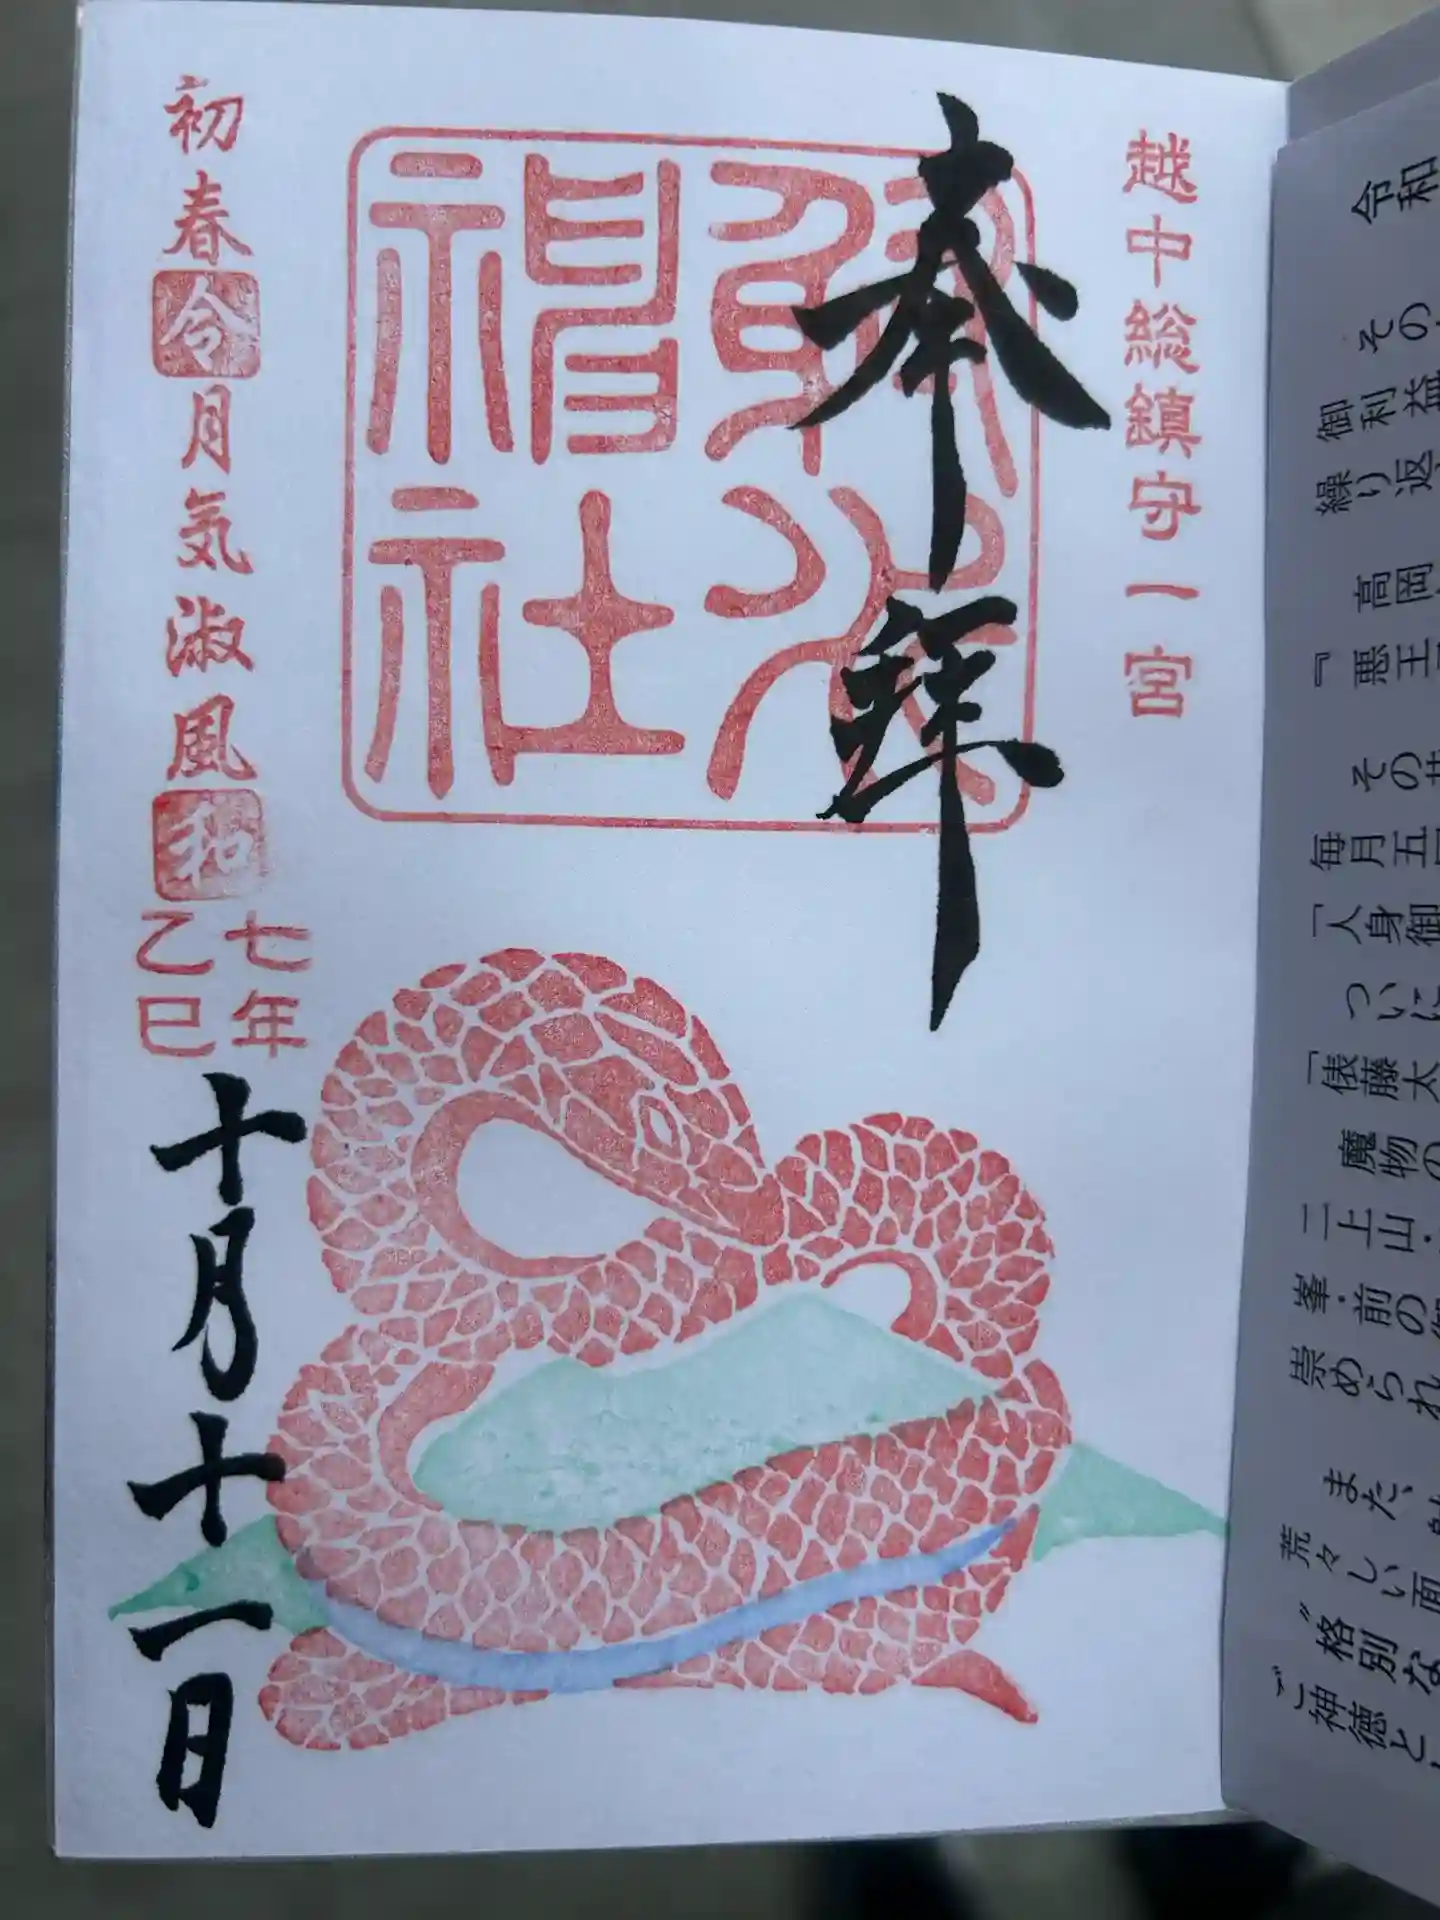 越中総鎮守一宮
奉拝
射水
神社
初春令月気淑風和
七年
乙巳
十月十一日
令和
その
御利益
繰り返
高岡
『悪王
その昔
毎月五
「人身御
ついに
「俵藤太
魔物の
二上山・
峯・前の御
崇められ
また、
荒々しい面
“格別な
ご神徳と